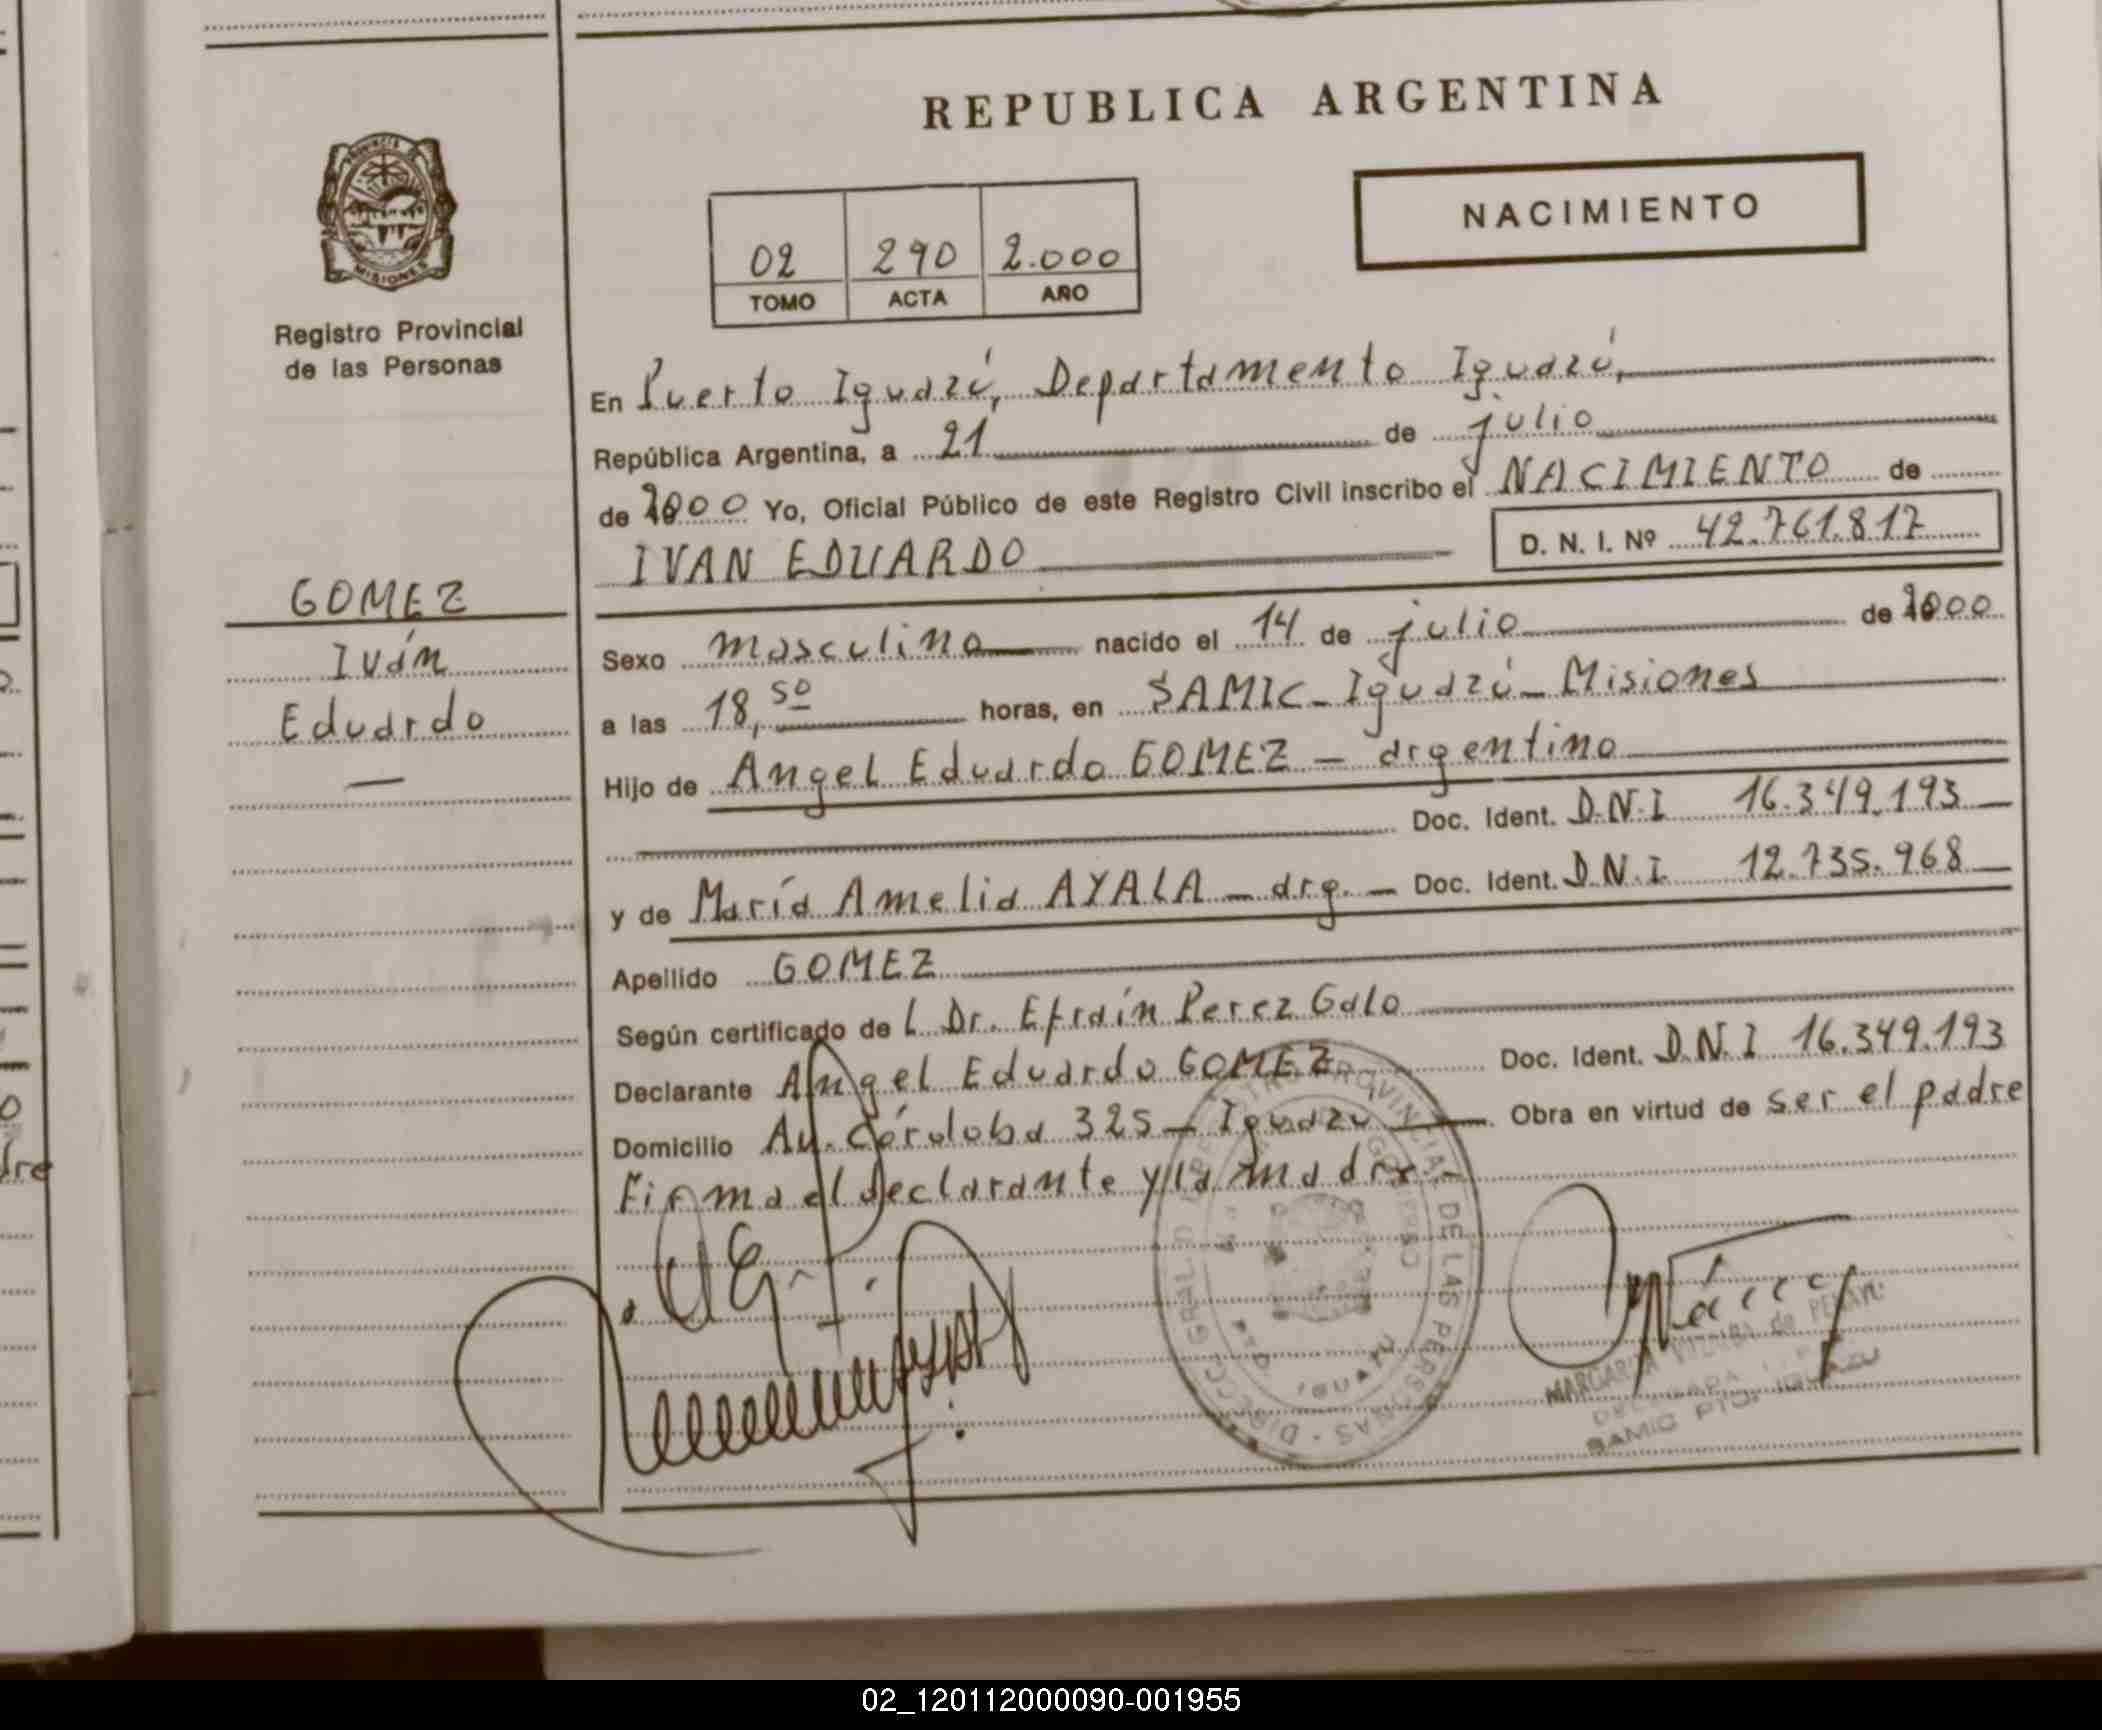 REPUBLICA ARGENTINA
PROVINCIA DE
MISIONES
Registro Provincial
de las Personas
02 290 2.000
TOMO ACTA AÑO
NACIMIENTO
En Puerto Iguazú, Departamento Iguazú,
República Argentina, a 21 de julio
de 2000 Yo, Oficial Público de este Registro Civil inscribo el NACIMIENTO de
IVAN EDUARDO D. N. I. Nº 42.761.817
GOMEZ
Iván
Eduardo
Sexo masculino nacido el 14 de julio de 2000
a las 18,50 horas, en SAMIC - Iguazú - Misiones
Hijo de Angel Eduardo GOMEZ - argentino
Doc. Ident. D.N.I 16.349.193
y de María Amelia AYALA - arg. - Doc. Ident. D.N.I. 12.735.968
Apellido GOMEZ
Según certificado de l Dr. Efraín Perez Galo
Declarante Angel Eduardo GOMEZ Doc. Ident. D.N.I 16.349.193
Domicilio Av. Córdoba 325 - Iguazú Obra en virtud de ser el padre
Firma el declarante y la madre.-
DIRECC. GRAL. D REGISTRO PROVINCIAL DE LAS PERSONAS
PTO. IGUAZU
MARGARITA de
SAMIC PTO. IGUAZU
02_120112000090-001955